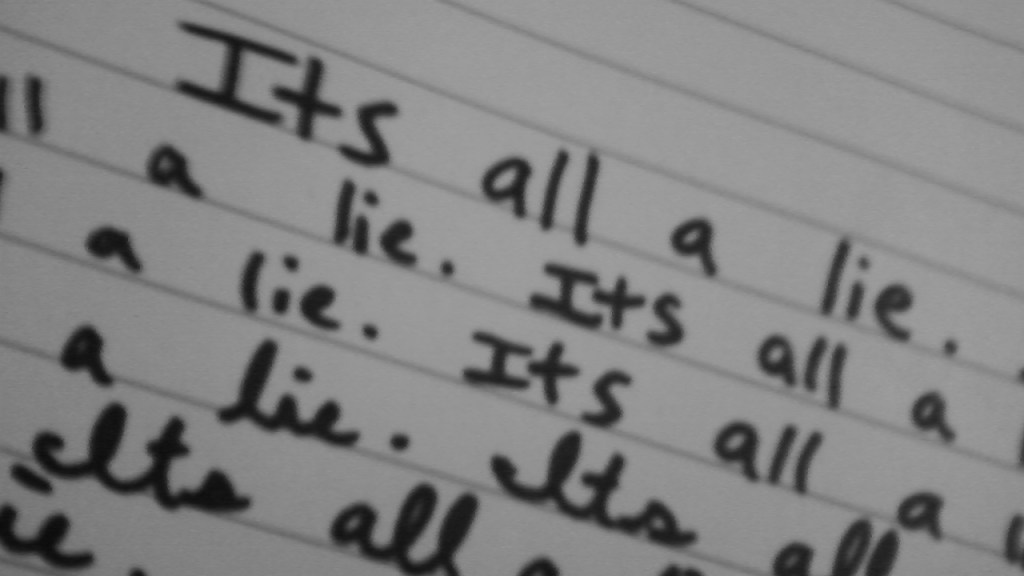 Its all a lie.
all a lie. Its all a
a lie. Its all a
a lie. Its all
Its all a
lie.